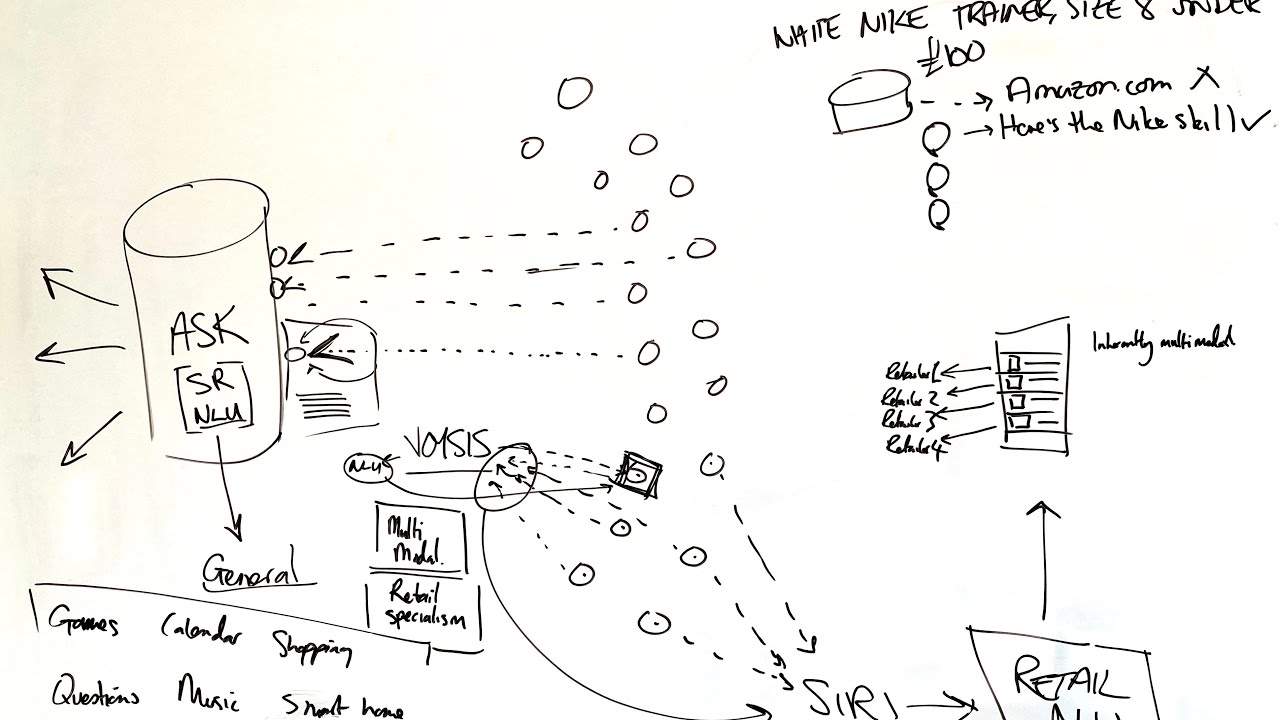 WHITE NIKE TRAINER, SIZE 8 UNDER
£100
Amazon.com X
Here's the Nike skill ✓
ASK
SR
NLU
Inherently multimodal
Retailer 1
Retailer 2
Retailer 3
Retailer 4
VOYSIS
NLU
Multi
Modal.
Retail
specialism
General
Games Calendar Shopping
Questions Music Smart home
SIRI
RETAIL
NLU